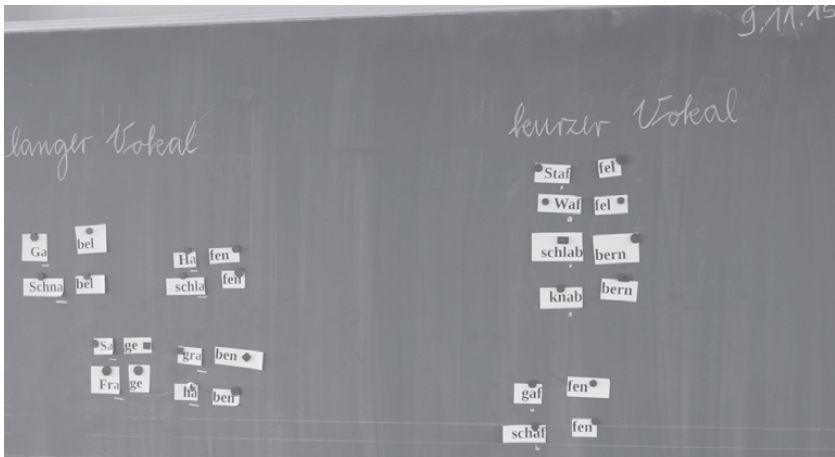 9.11.15
langer Vokal
kurzer Vokal
Ga bel
Schna bel
Ha fen
schla fen
Sa ge
Fra ge
gra ben
ha ben
Staf fel
Waf fel
schlab bern
knab bern
gaf fen
schaf fen